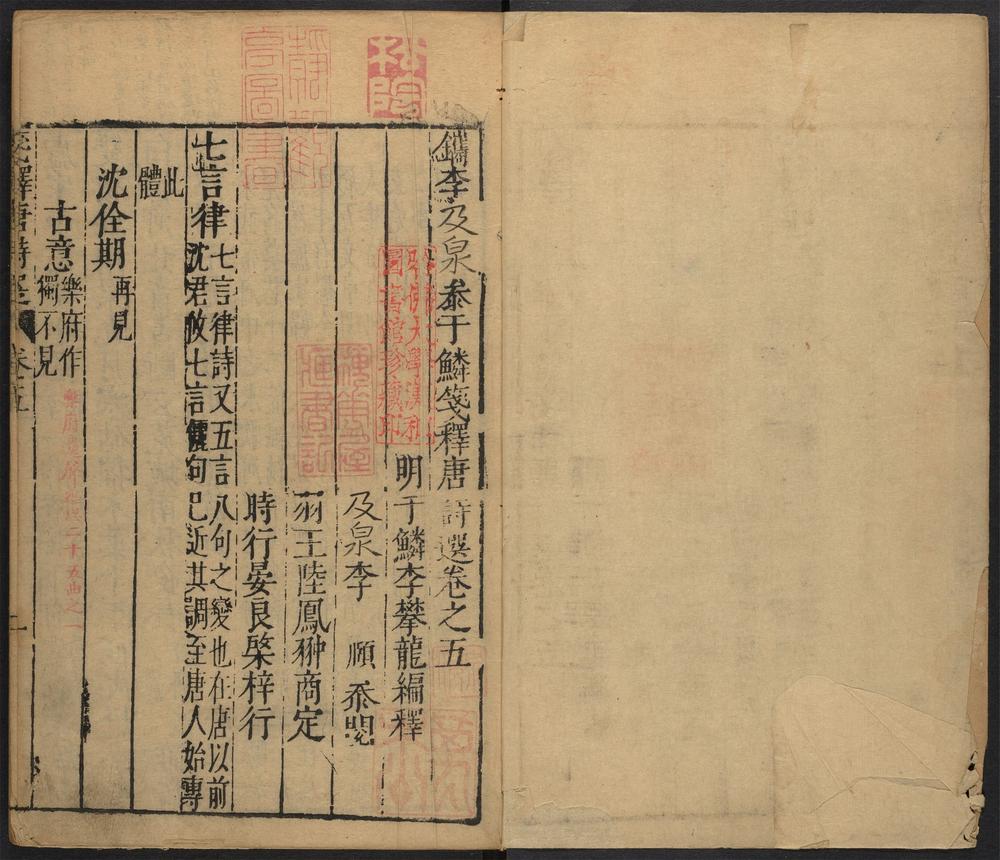 鐫李及泉叅于鱗箋釋唐詩選卷之五
明于鱗李攀龍編釋
及泉李頤叅閱
羽王陸鳳翀商定
時行晏良棨梓行
七言律七言律詩又五言八句之變也在唐以前
沈君攸七言儷句已近其調至唐人始專
此
體
沈佺期再見
古意樂府作
獨不見
樂府
二十五曲之一
箋釋唐詩選
卷之五
一
松陰